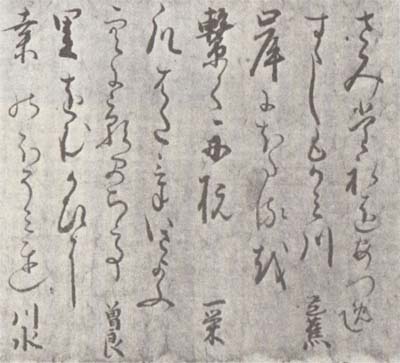 さみ堂礼遠あつめて
すゝしもかミ川　芭蕉
岸にほたるを
繋く舟杭　一栄
瓜はたけいさよふ
空に影まちて　曽良
里をむかひに
桑のほそミち　川水